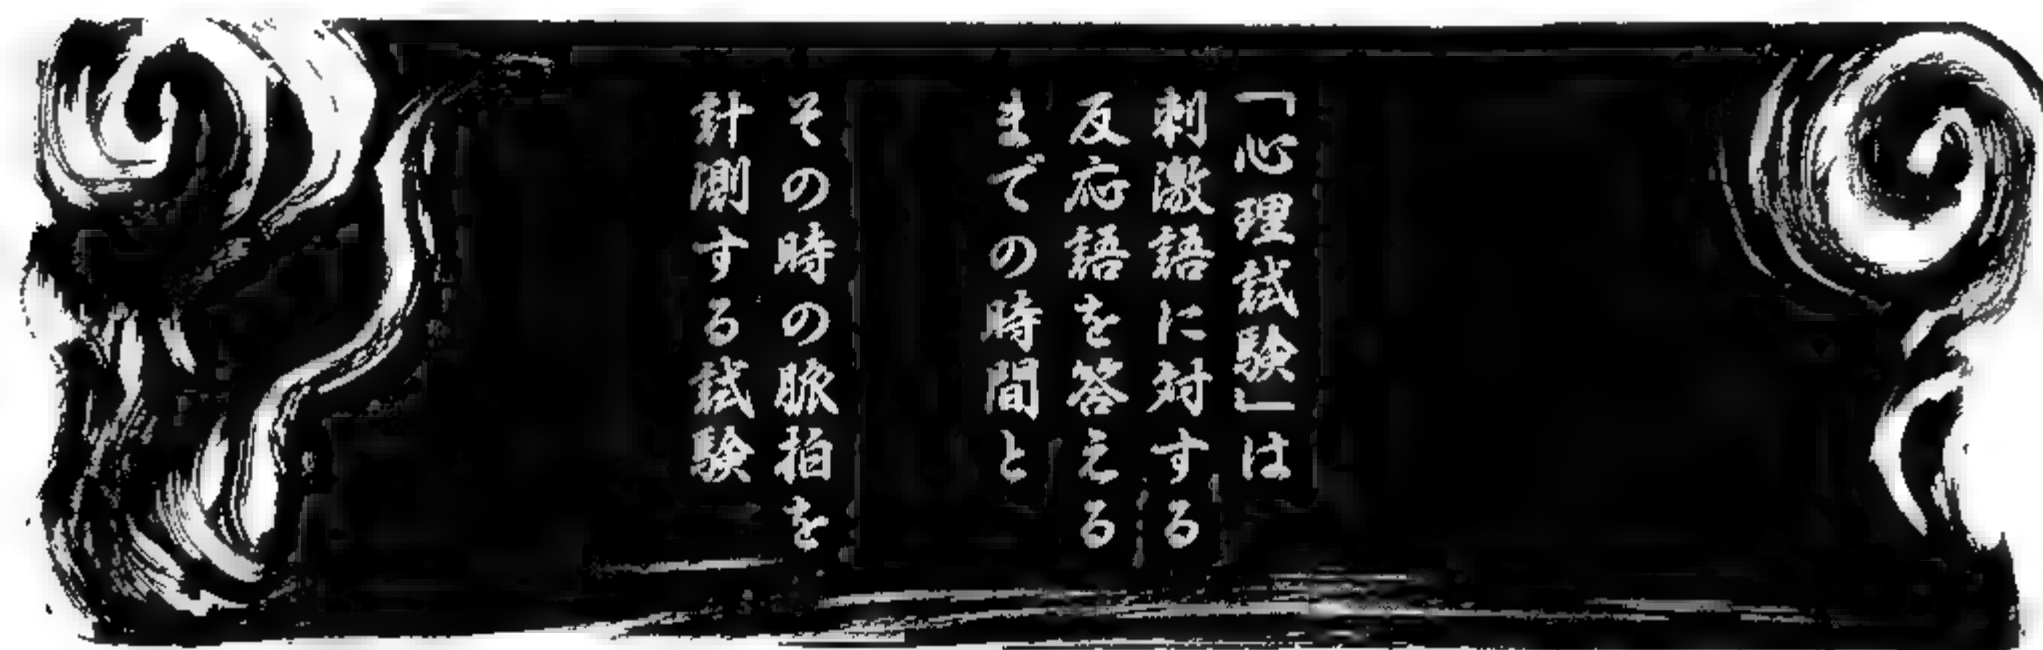 「心理試験」は
刺激語に対する
反応語を答える
までの時間と
その時の脈拍を
計測する試験